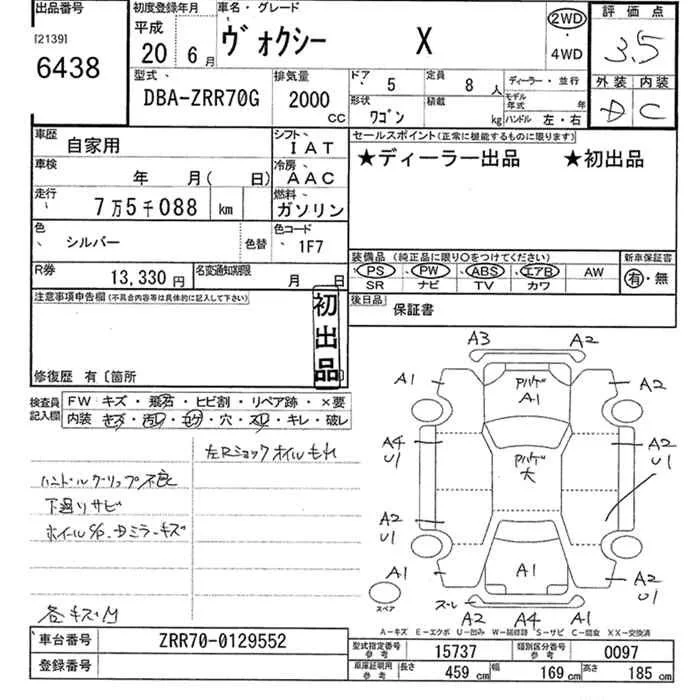 出品番号
[2139]
6438
初度登録年月
平成
20 6月
車名・グレード
ヴォクシー X
2WD
・
4WD
評価点
3.5
外装 内装
D C
型式
DBA-ZRR70G
排気量
2000 CC
ドア 5
定員 8 人
ディーラー・並行
形状 ワゴン
積載 kg
モデル年式 年
ハンドル 左・右
車歴 自家用
シフト IAT
車検 年 月( 日)
冷房 AAC
走行 7万5千088 km
燃料 ガソリン
色 シルバー
色替
色コード 1F7
R券 13,330円
名変通知期限 月 日
セールスポイント(正常に機能するものに限ります)
★ディーラー出品 ★初出品
装備品 (純正品に限り○をつけてください)
新車保証書
PS PW ABS エアB AW
SR ナビ TV カワ
有・無
後日品 保証書
注意事項申告欄(不具合内容等は具体的に記入して下さい)
初出品
修復歴 有〔箇所
検査員記入欄
FW キズ・飛石・ヒビ割・リペア跡・×要
内装 キズ・汚レ・コゲ・穴・スレ・キレ・破レ
左Rショックオイルもれ
ハンドルグリップ不良
下廻りサビ
ホイールS/P・Dミラーキズ
各キズ凹
A3 A2
A1 A2
A1
A4 U1
A2 U1
A2 U1
A1
A1
A2 U1
スレ
A2 A4 A1
スペア
A-キズ E-エクボ U-凹み W-補修跡 S-サビ C-腐食 XX-交換済
車台番号 ZRR70-0129552
登録番号
型式指定番号 参考 15737
類別区分番号 参考 0097
車庫証明用 参考
長さ 459 cm
幅 169 cm
高さ 185 cm